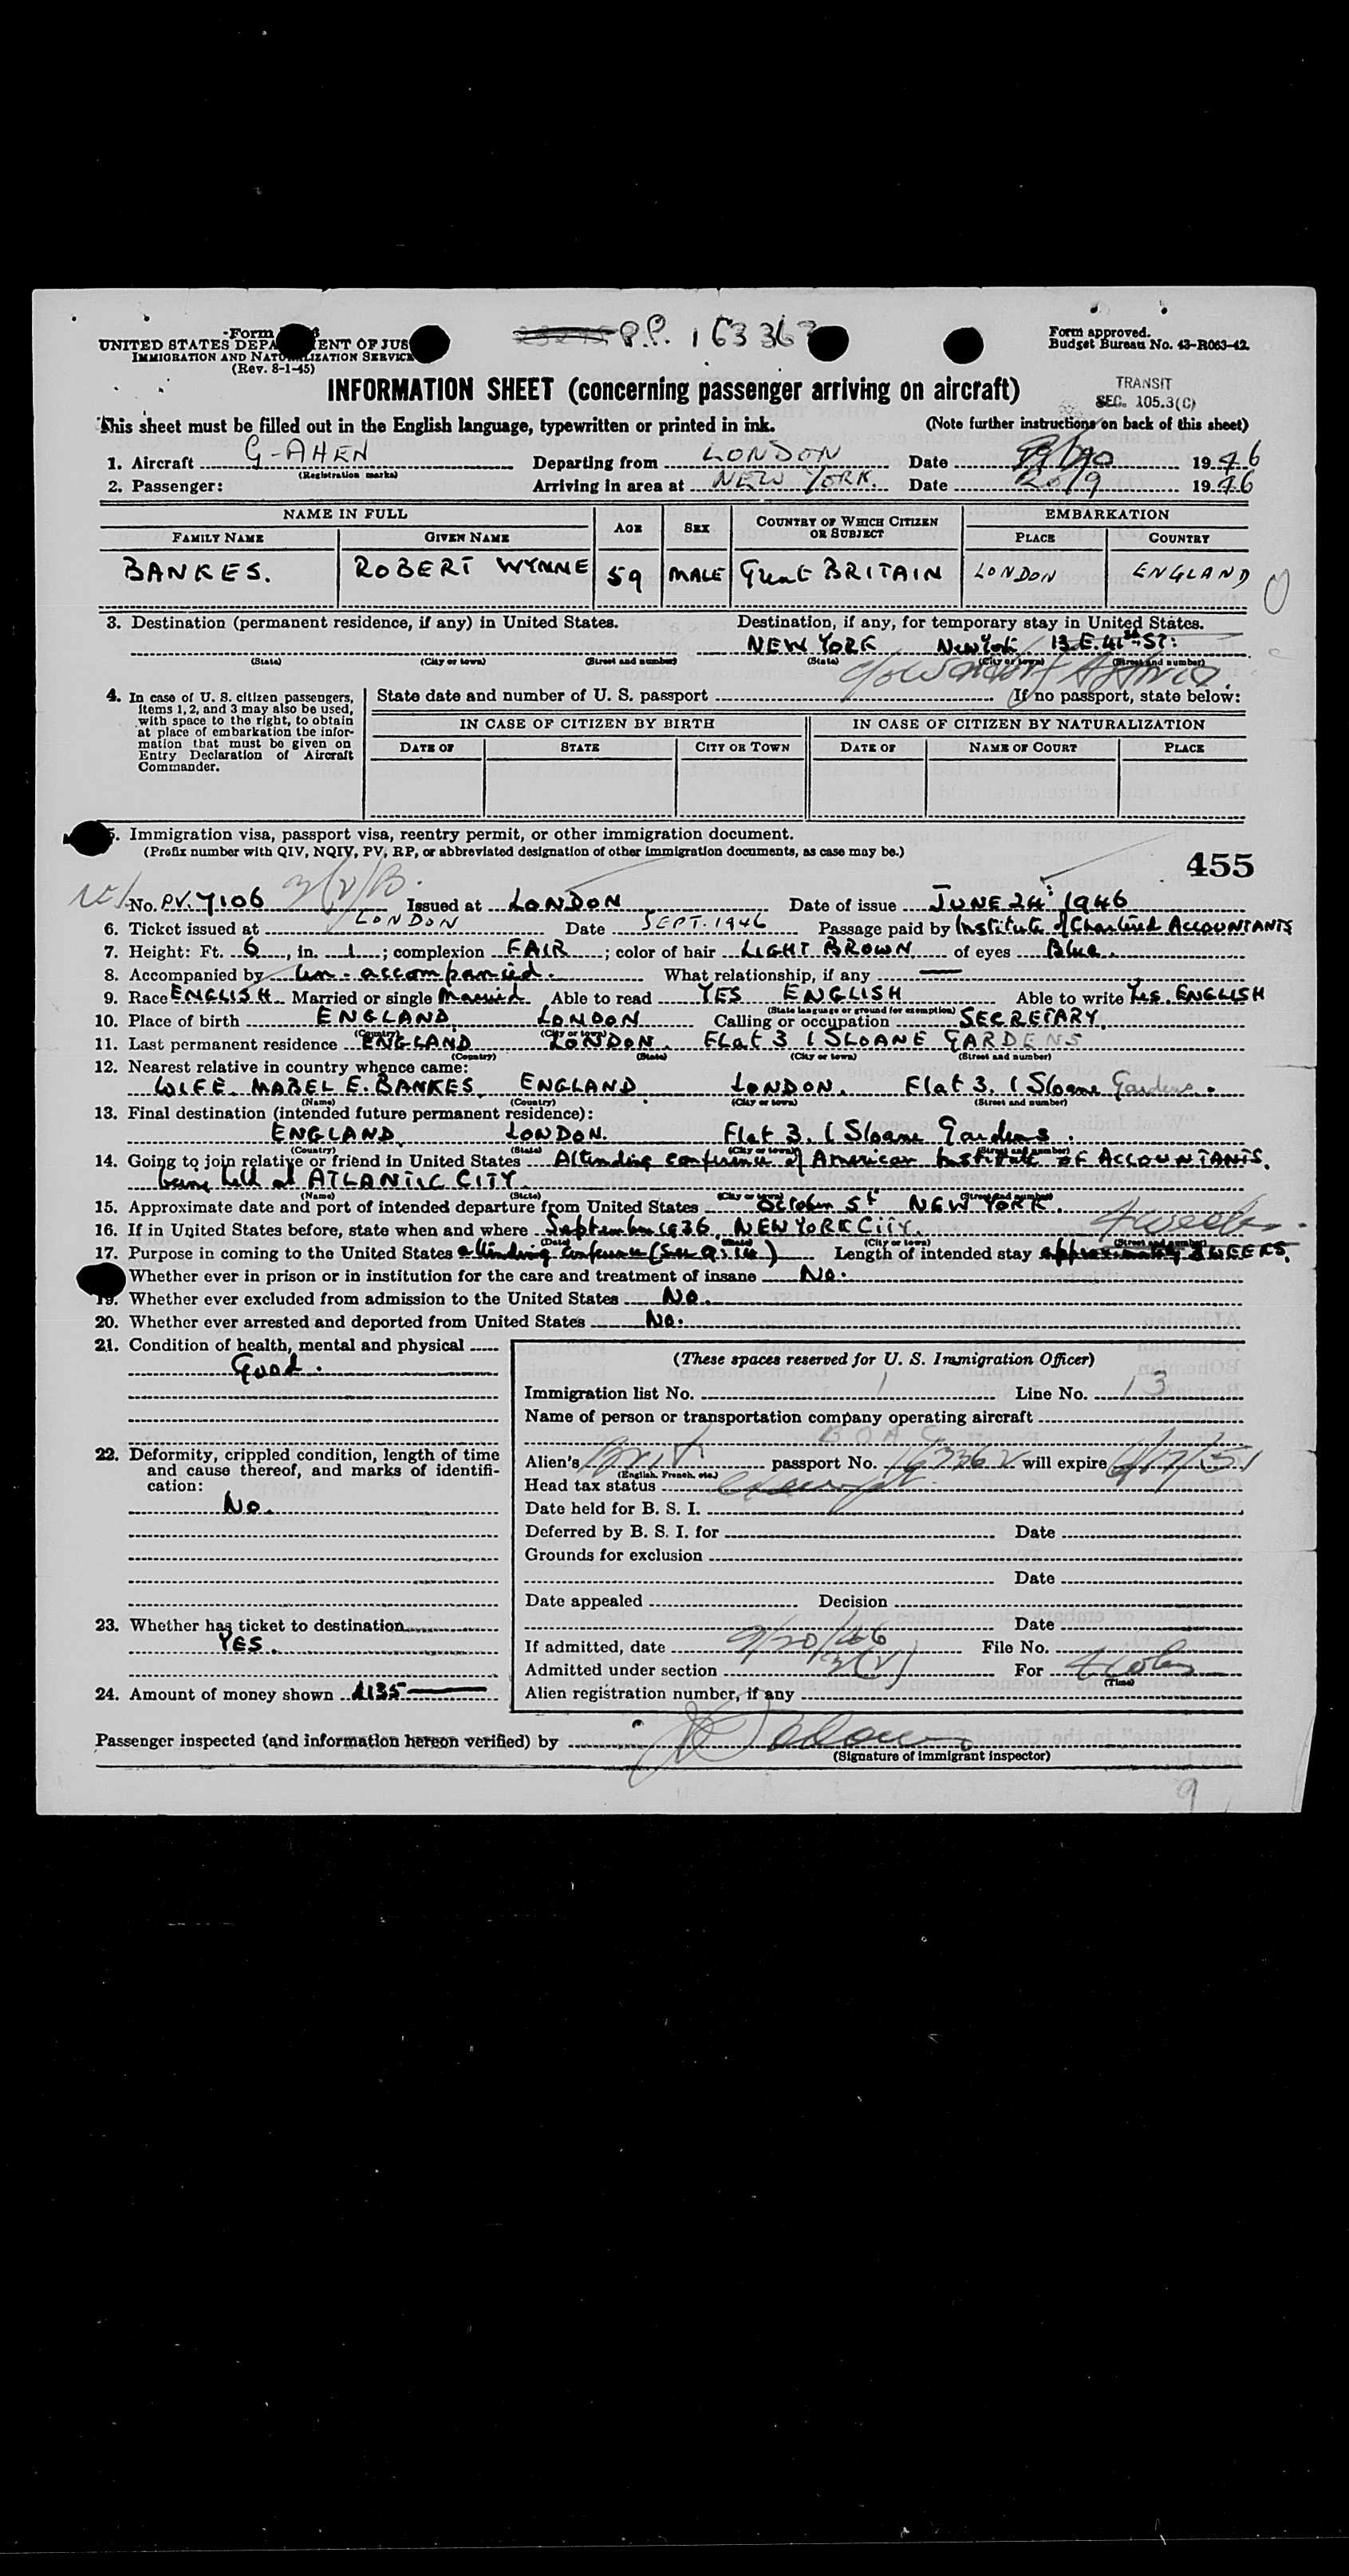 Form
UNITED STATES DEPA ENT OF JUS
IMMIGRATION AND NATURALIZATION SERVICE
(Rev. 8-1-45)
P.P. 163362
Form approved.
Budget Bureau No. 43-R063-42.
INFORMATION SHEET (concerning passenger arriving on aircraft)
TRANSIT
SEC. 105.3(C)
This sheet must be filled out in the English language, typewritten or printed in ink. (Note further instructions on back of this sheet)
1. Aircraft G-AHEN Departing from LONDON Date 1946
(Registration marks)
2. Passenger: Arriving in area at NEW YORK. Date 20/9 1946
NAME IN FULL AGE SEX COUNTRY OF WHICH CITIZEN OR SUBJECT EMBARKATION
FAMILY NAME GIVEN NAME PLACE COUNTRY
BANKES. ROBERT WYNNE 59 MALE Great BRITAIN LONDON ENGLAND
3. Destination (permanent residence, if any) in United States. Destination, if any, for temporary stay in United States.
NEW YORK New York 13 E. 41st St:
(State) (City or town) (Street and number) (State) (City or town) (Street and number)
c/o Waldorf Astoria.
4. In case of U. S. citizen passengers, items 1, 2, and 3 may also be used, with space to the right, to obtain at place of embarkation the information that must be given on Entry Declaration of Aircraft Commander.
State date and number of U. S. passport If no passport, state below:
IN CASE OF CITIZEN BY BIRTH IN CASE OF CITIZEN BY NATURALIZATION
DATE OF STATE CITY OR TOWN DATE OF NAME OF COURT PLACE
5. Immigration visa, passport visa, reentry permit, or other immigration document.
(Prefix number with QIV, NQIV, PV, RP, or abbreviated designation of other immigration documents, as case may be.)
455
No. PV. 7106 Issued at LONDON Date of issue JUNE 24: 1946
6. Ticket issued at LONDON Date SEPT. 1946 Passage paid by Institute of Chartered ACCOUNTANTS
7. Height: Ft. 6, in. 1; complexion FAIR; color of hair LIGHT BROWN of eyes Blue.
8. Accompanied by Un-accompanied. What relationship, if any —
9. Race ENGLISH Married or single Married Able to read YES ENGLISH Able to write Yes. ENGLISH
(State language or ground for exemption)
10. Place of birth ENGLAND. LONDON Calling or occupation SECRETARY.
(Country) (City or town)
11. Last permanent residence ENGLAND LONDON. FLat 3 1 SLOANE GARDENS
(Country) (State) (City or town) (Street and number)
12. Nearest relative in country whence came:
WIFE. MABEL E. BANKES. ENGLAND LONDON. Flat 3. 1 Sloane Gardens.
(Name) (Country) (City or town) (Street and number)
13. Final destination (intended future permanent residence):
ENGLAND. LONDON. Flat 3. 1 Sloane Gardens.
(Country) (State) (City or town) (Street and number)
14. Going to join relative or friend in United States Attending conference of American Institute OF ACCOUNTANTS.
being held at ATLANTIC CITY.
(Name) (State) (City or town) (Street and number)
15. Approximate date and port of intended departure from United States October 5th NEW YORK.
16. If in United States before, state when and where September 1936 NEW YORK CITY. 4 weeks.
(Date) (State) (City or town) (Street and number)
17. Purpose in coming to the United States attending conference (See Q's 14) Length of intended stay approximately WEEKS.
Whether ever in prison or in institution for the care and treatment of insane No.
19. Whether ever excluded from admission to the United States No.
20. Whether ever arrested and deported from United States No.
21. Condition of health, mental and physical
Good.
22. Deformity, crippled condition, length of time and cause thereof, and marks of identification:
No.
23. Whether has ticket to destination
YES.
24. Amount of money shown £135
(These spaces reserved for U. S. Immigration Officer)
Immigration list No. 1 Line No. 13
Name of person or transportation company operating aircraft
B O A C
Alien's Brit passport No. 163362 will expire 6/17/51
(English, French, etc.)
Head tax status exempt
Date held for B. S. I.
Deferred by B. S. I. for Date
Grounds for exclusion
Date
Date appealed Decision
Date
If admitted, date 9/20/46 File No.
Admitted under section 3(2) For 4 wks
(Time)
Alien registration number, if any
Passenger inspected (and information hereon verified) by
(Signature of immigrant inspector)
9